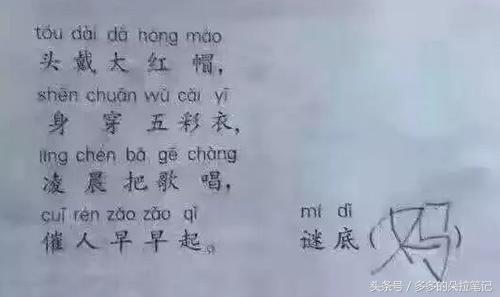 tóu dài dà hóng mào
头戴大红帽，
shēn chuān wǔ cǎi yī
身穿五彩衣，
líng chén bǎ gē chàng
凌晨把歌唱，
cuī rén zǎo zǎo qǐ
催人早早起。
mí dǐ
谜底(妈)
头条号 / 多多的朵拉笔记